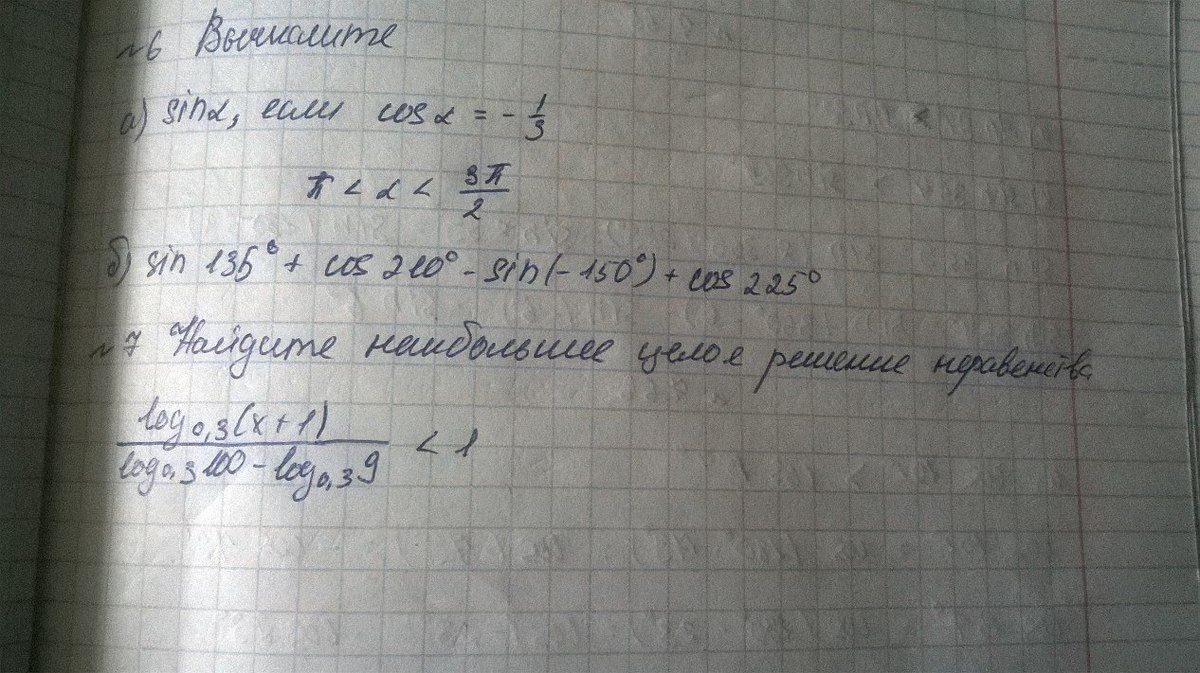 №6 Вычислите
а) sinα, если cosα = - 1/3
π < α < 3π/2
б) sin 135° + cos 210° - sin(-150°) + cos 225°
№7 Найдите наибольшее целое решение неравенства
log₀,₃(x+1) / log₀,₃100 - log₀,₃9 < 1